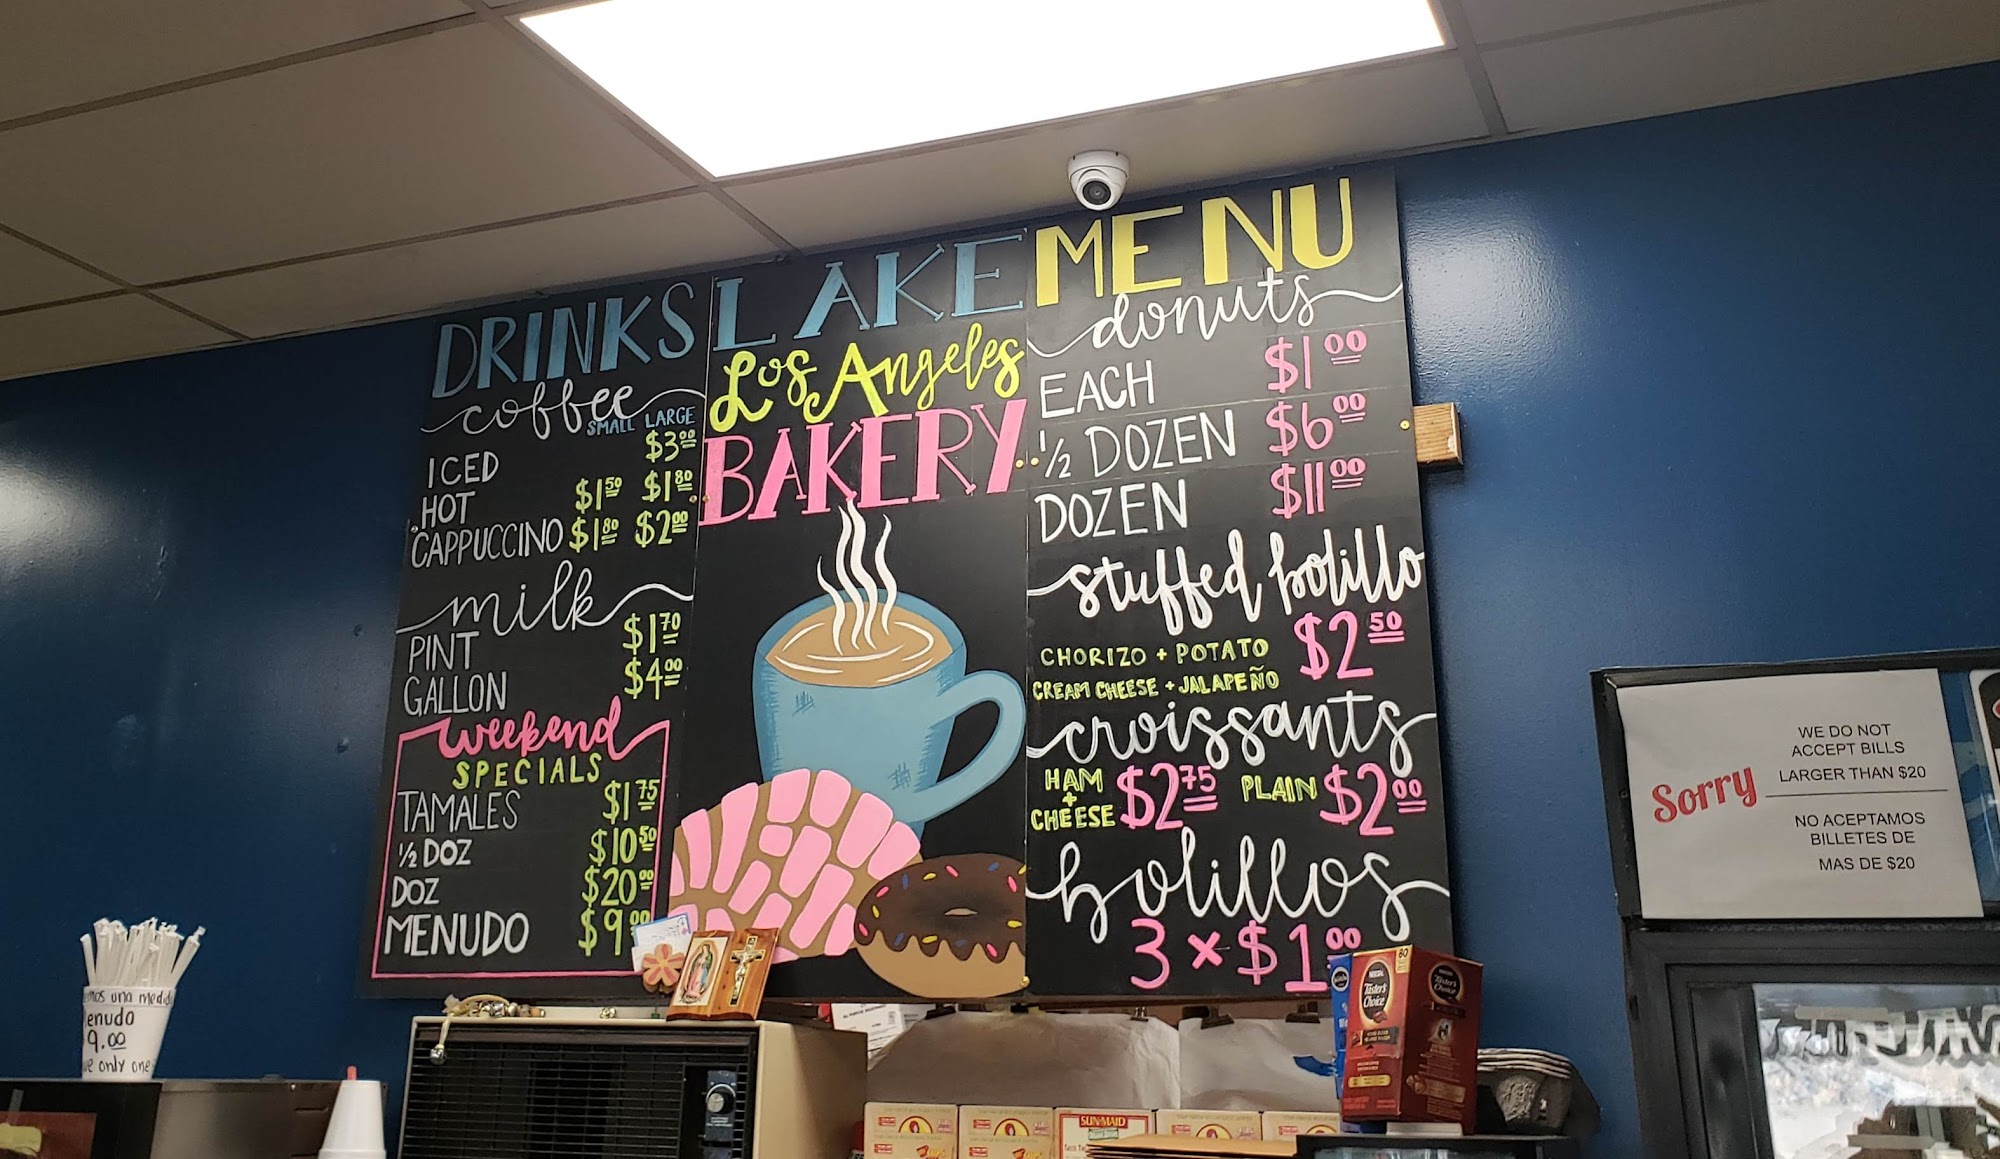 DRINKS
coffee
SMALL LARGE
ICED $3.00
HOT $1.50 $1.80
CAPPUCCINO $1.80 $2.00
milk
PINT $1.70
GALLON $4.00
weekend
SPECIALS
TAMALES $1.75
1/2 DOZ $10.50
DOZ $20.00
MENUDO $9.00
LAKE
Los Angeles
BAKERY
MENU
donuts
EACH $1.00
1/2 DOZEN $6.00
DOZEN $11.00
stuffed bolillo
CHORIZO + POTATO $2.50
CREAM CHEESE + JALAPEÑO
croissants
HAM + CHEESE $2.75 PLAIN $2.00
bolillos
3 x $1.00
Sorry
WE DO NOT
ACCEPT BILLS
LARGER THAN $20
NO ACEPTAMOS
BILLETES DE
MAS DE $20
una
enudo
9.00
only one
NESCAFÉ
Taster's
Choice
Taster's
Choice
SUN-MAID